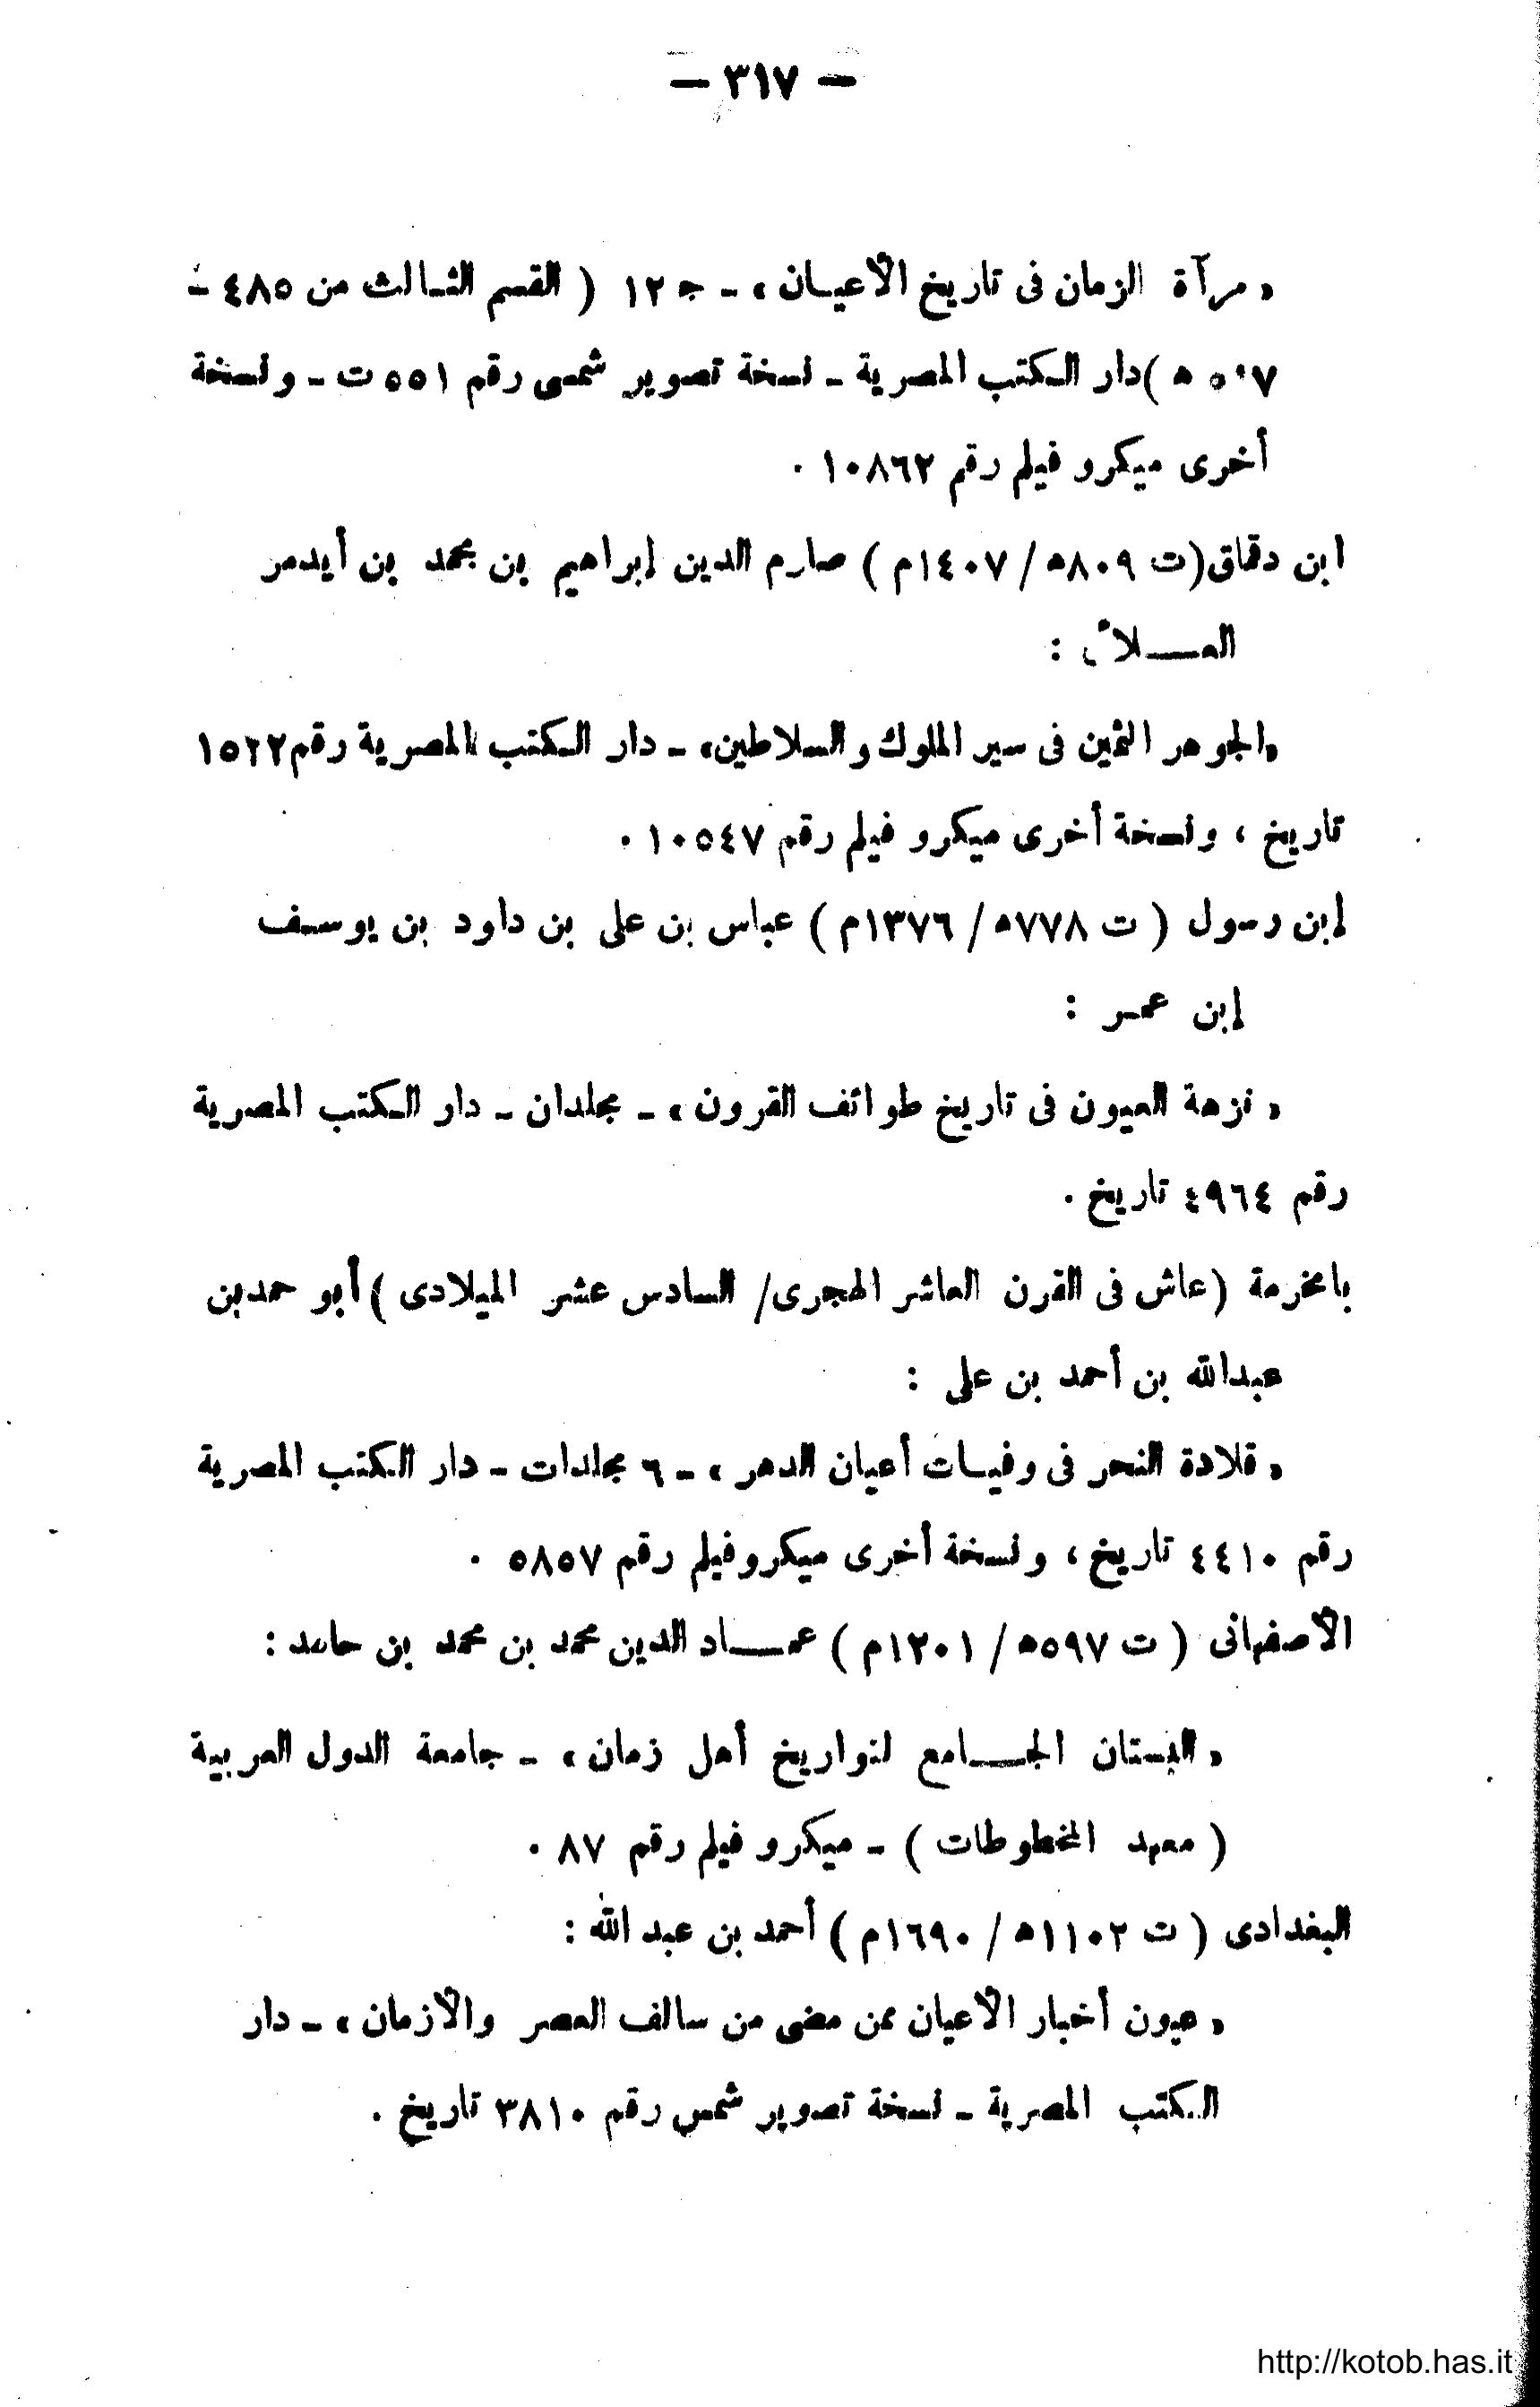 — ٣١٧ —
« مرآة الزمان فى تاريخ الأعيـان » ـ ج ١٢ ( القسم الثـالث من ٤٨٥ ـ
٥٠٧ ه ) دار الـكتب المصرية ـ نسخة تصوير شمسى رقم ٥٥١ ت ـ ونسخة
أخرى ميكرو فيلم رقم ١٠٨٦٢ .
ابن دقماق (ت ٨٠٩ه / ١٤٠٧م ) صارم الدين إبراهيم بن محمد بن أيدمر
:
«الجوهر الثمين فى سير الملوك والسلاطين» ـ دار الـكتب المصرية رقم ١٥٢٢
تاريخ ، ونسخة أخرى ميكرو فيلم رقم ١٠٥٤٧ .
إبن رسول ( ت ٧٧٨ه / ١٣٧٦م ) عباس بن على بن داود بن يوسـف
إبن عمـر :
« نزهة العيون فى تاريخ طوائف القرون » ـ مجلدان ـ دار الـكتب المصرية
رقم ٤٩٦٤ تاريخ .
بامخرمة (عاش فى القرن العاشر الهجرى/ السادس عشر الميلادى ) أبو حمد بن
عبدالله بن أحمد بن على :
« قلادة النحر فى وفيـات أعيان الدهر » ـ ٦ مجلدات ـ دار الكتب المصرية
رقم ٤٤١٠ تاريخ ، ونسخة أخرى ميكروفيلم رقم ٥٨٥٧ .
الأصفهانى ( ت ٥٩٧ه / ١٢٠١م ) عمـــاد الدين محمد بن محمد بن حامد :
« البستان الجـــامع لتواريخ أهل زمان » ـ جامعة الدول العربية
( معهد المخطوطات ) ـ ميكرو فيلم رقم ٨٧ .
البغدادى ( ت ١١٠٢ه / ١٦٩٠م ) أحمد بن عبد الله :
« عيون أخبار الأعيان ممن مضى من سالف العصر والأزمان » ـ دار
الكتب المصرية ـ نسخة تصوير شمس رقم ٣٨١٠ تاريخ .
http://kotob.has.it